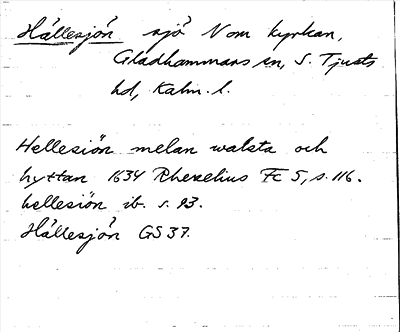 Hållesjön sjö N om kyrkan,
Gladhammars sn, S. Tjusts
hd, Kalm. l.
Hellesiön melan walsta och
hyttan 1634 Rhezelius Fc 5, s. 116.
hellesiön ib. s. 93.
Hållesjön GS 37.